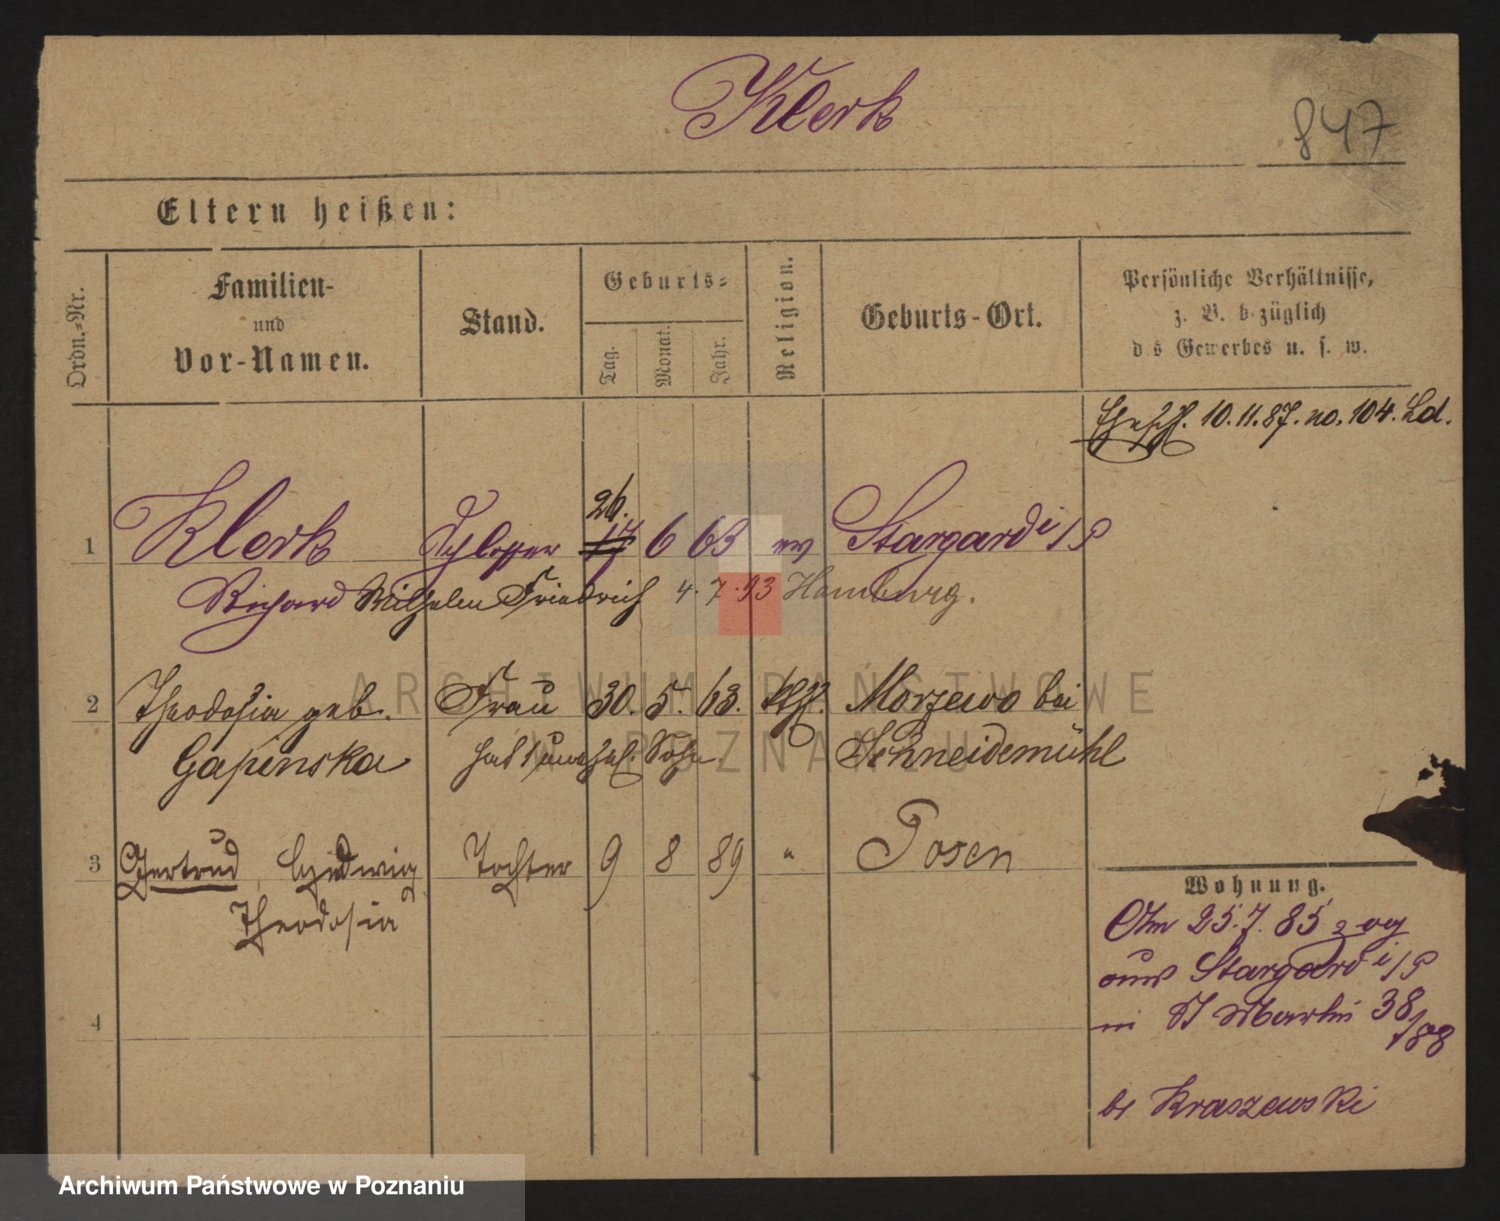 Klerk
847
Eltern heißen:
Ordn.=Nr.
Familien-
und
Vor-Namen.
Stand.
Geburts=
Tag.
Monat.
Jahr.
Religion.
Geburts-Ort.
Persönliche Verhältnisse,
z. B. bezüglich
des Gewerbes u. s. w.
Eheschl. 10.11.87. no. 104. Ld.
26.
1 Klerk Schlosser 17 6 63 ev Stargard i/P
Richard Wilhelm Friedrich 4.7.93 Hamburg.
2 Theodosia geb. Frau 30. 5. 63. kth. Morzewo bei
Gapinska hat 1 Sohn Schneidemühl
3 Gertrud, Hedwig Tochter 9 8 89 " Posen
Theodosia
Wohnung.
Am 25.7.85 zog
aus Stargard i/P
in St Martin 38
/88
4
bs Kraszewski
ARCHIWUM PAŃSTWOWE
W POZNANIU
Archiwum Państwowe w Poznaniu